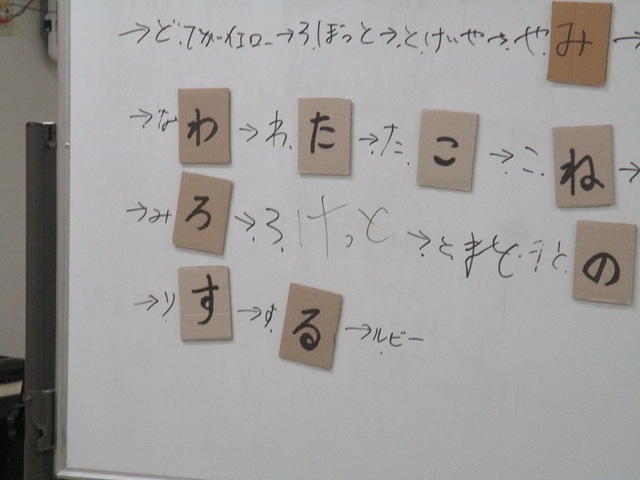 →ど.てがイエロー→ろぼっと→とけいや→やみ→
→なわ→わた→たこ→こね→
→みろ→ろけっと→とまと
の
→りす→する→ルビー